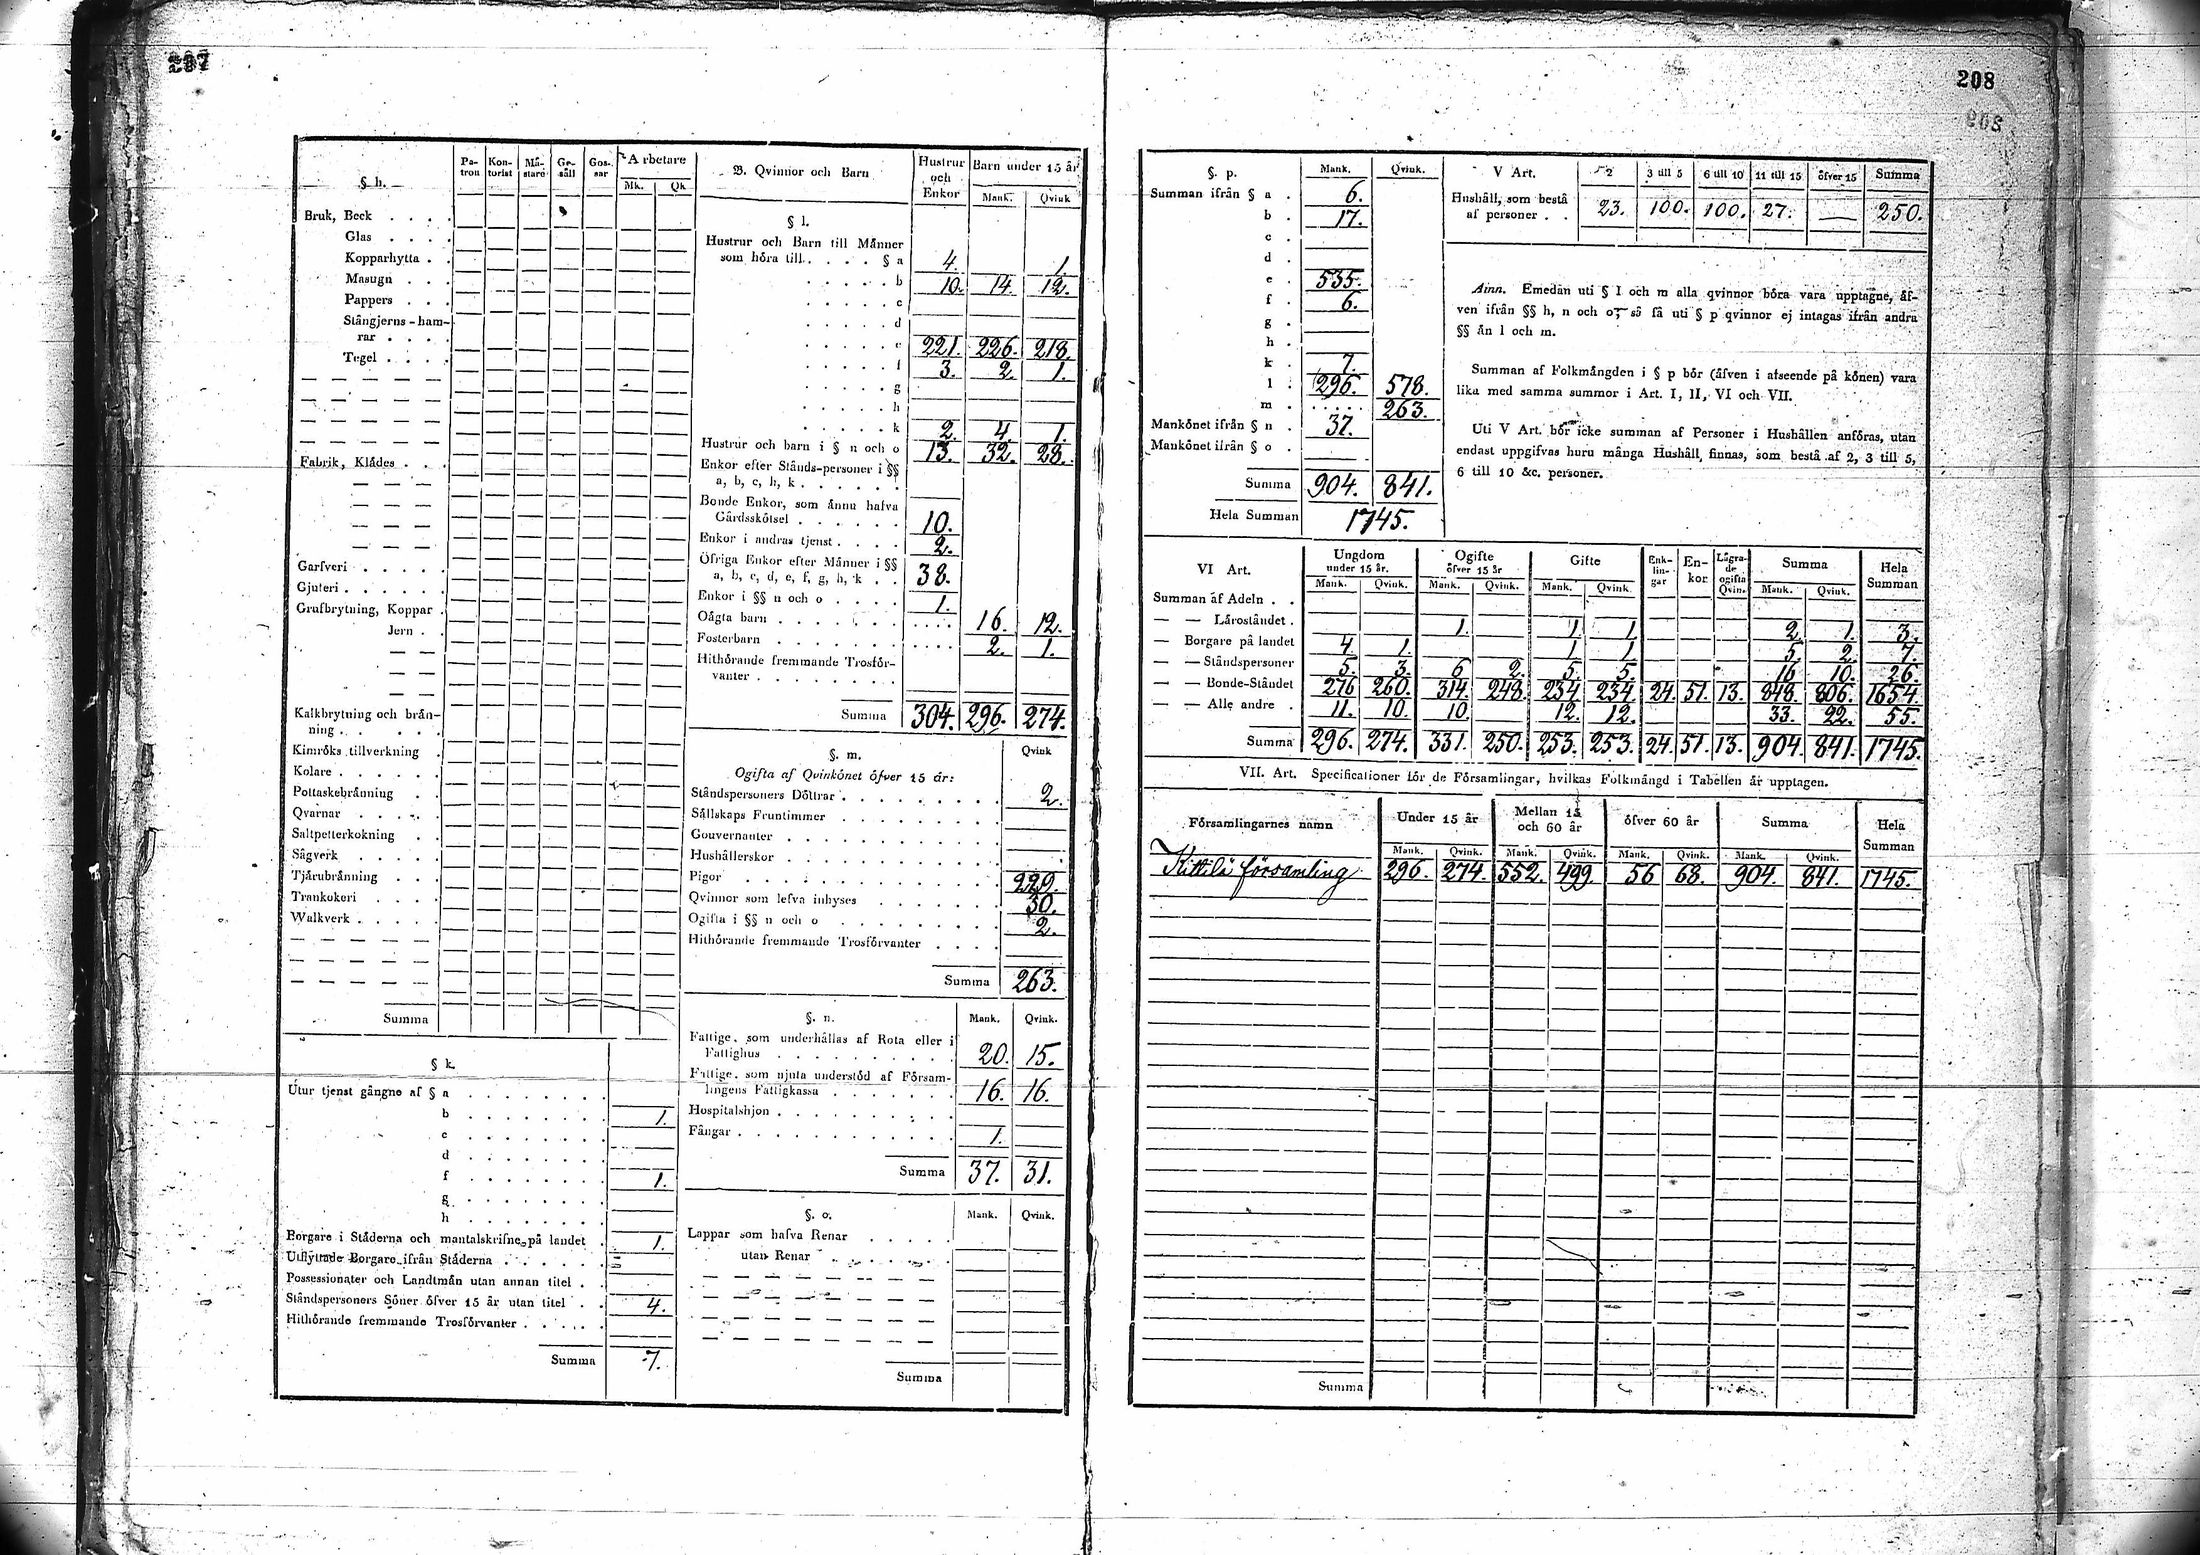 207
§ h.
Pa-tron Kon-torist Mä-stare Ge-säll Gos-sar Arbetare
Mk. Qk
Bruk, Beck
Glas
Kopparhytta
Masugn
Pappers
Stångjerns-ham-
rar
Tegel
Fabrik, Klädes
Garfveri
Gjuteri
Grufbrytning, Koppar
Jern
Kalkbrytning och brån-
ning
Kimröks tillverkning
Kolare
Pottaskebränning
Qvarnar
Saltpetterkokning
Sågverk
Tjårubrånning
Trankokeri
Walkverk
Summa
§ k.
Utur tjenst gångne af § a
b 1.
c
d
f 1.
g
h
Borgare i Ståderna och mantalskrifne på landet 1.
Utflyttade Borgare ifrån Ståderna
Possessionater och Landtmän utan annan titel
Ståndspersoners Söner öfver 15 år utan titel 4.
Hithörande fremmande Trosförvanter
Summa 7.
B. Qvinnor och Barn
Hustrur och Enkor
Barn under 15 år
Mank. Qvink
§ l.
Hustrur och Barn till Männer
som höra till § a 4. 1.
b 10. 14. 12.
c
d
e 221. 226. 218.
f 3. 2. 1.
g
h
k 2. 4. 1.
Hustrur och barn i § n och o 13. 32. 28.
Enkor efter Stånds-personer i §§
a, b, c, h, k
Bonde Enkor, som ännu hafva
Gårdsskötsel 10.
Enkor i andras tjenst 2.
Öfriga Enkor efter Männer i §§
a, b, c, d, e, f, g, h, k 38.
Enkor i §§ n och o 1.
Oägta barn 16. 12.
Fosterbarn 2. 1.
Hithörande fremmande Trosför-
vanter
Summa 304. 296. 274.
§. m. Qvink
Ogifta af Qvinkönet öfver 15 år:
Ståndspersoners Döttrar 2.
Sällskaps Fruntimmer
Gouvernanter
Hushållerskor
Pigor 229.
Qvinnor som lefva inhyses 30.
Ogifta i §§ n och o 2.
Hithörande fremmande Trosförvanter
Summa 263.
§. n. Mank. Qvink.
Fattige, som underhållas af Rota eller i
Fattighus 20. 15.
Fattige, som njuta understöd af Försam-
lingens Fattigkassa 16. 16.
Hospitalshjon
Fångar 1.
Summa 37. 31.
§. o. Mank. Qvink.
Lappar som hafva Renar
utan Renar
Summa
208
§. p. Mank. Qvink.
Summan ifrån § a 6.
b 17.
c
d
e 535.
f 6.
g
h
k 7.
l 296. 578.
m 263.
Mankönet ifrån § n 37.
Mankönet ifrån § o
Summa 904. 841.
Hela Summan 1745.
V Art. 2 3 till 5 6 till 10 11 till 15 öfver 15 Summa
Hushåll, som bestå
af personer 23. 100. 100. 27. — 250.
Anm. Emedan uti § l och m alla qvinnor böra vara upptagne, äf-
ven ifrån §§ h, n och o, så få uti § p qvinnor ej intagas ifrån andra
§§ än l och m.
Summan af Folkmängden i § p bör (äfven i afseende på könen) vara
lika med samma summor i Art. I, II, VI och VII.
Uti V Art. bör icke summan af Personer i Hushållen anföras, utan
endast uppgifvas huru många Hushåll, finnas, som bestå af 2, 3 till 5,
6 till 10 &c. personer.
VI Art.
Ungdom under 15 år. Ogifte öfver 15 år Gifte Enk-lin-gar En-kor Lägra-de ogifta Qvin. Summa Hela Summan
Mank. Qvink. Mank. Qvink. Mank. Qvink. Mank. Qvink.
Summan af Adeln
— — Läroståndet 1. 1. 1. 2. 1. 3.
— — Borgare på landet 4. 1. 1. 1. 5. 2. 7.
— — Ståndspersoner 5. 3. 6 2. 5. 5. 16 10. 26.
— — Bonde-Ståndet 276 260. 314. 248. 234. 234. 24. 51. 13. 848. 806. 1654.
— — Alle andre 11. 10. 10. 12. 12. 33. 22. 55.
Summa 296. 274. 331. 250. 253. 253. 24. 51. 13. 904. 841. 1745.
VII. Art. Specificationer för de Församlingar, hvilkas Folkmängd i Tabellen är upptagen.
Församlingarnes namn Under 15 år Mellan 15 och 60 år öfver 60 år Summa Hela Summan
Mank. Qvink. Mank. Qvink. Mank. Qvink. Mank. Qvink.
Kittilä församling 296. 274. 552. 499. 56 68. 904. 841. 1745.
Summa